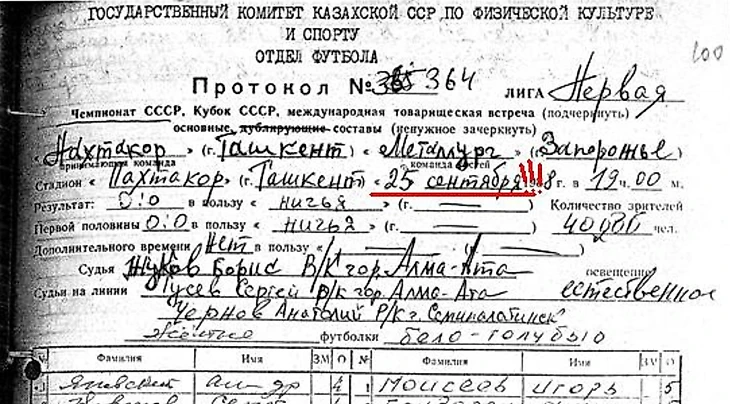 ГОСУДАРСТВЕННЫЙ КОМИТЕТ КАЗАХСКОЙ ССР ПО ФИЗИЧЕСКОЙ КУЛЬТУРЕ
И СПОРТУ
ОТДЕЛ ФУТБОЛА
100
Протокол № 364 ЛИГА Первая
Чемпионат СССР, Кубок СССР, международная товарищеская встреча (подчеркнуть)
основные, дублирующие составы (ненужное зачеркнуть)
« Пахтакор » (г. Ташкент) « Металлург » (г. Запорожье)
принимающая команда команда гостей
Стадион « Пахтакор » г. Ташкент « 25 сентября 8 г. в 19 ч. 00 м.
Результат: 0:0 в пользу « ничья » (г. ) Количество зрителей
Первой половины 0:0 в пользу « ничья » (г. ) чел.
Дополнительного времени Нет в пользу « (г. )
Судья Жуков Борис В/К гор. Алма-Ата освещение
Судьи на линии Гусев Сергей Р/К гор. Алма-Ата естественное
Чернов Анатолий Р/К г. Семипалатинск
Желтые футболки бело-голубые
№ Фамилия Имя ЗМ О № Фамилия Имя ЗМ О
1 Яновский 4 1 Моисеев Игорь 5